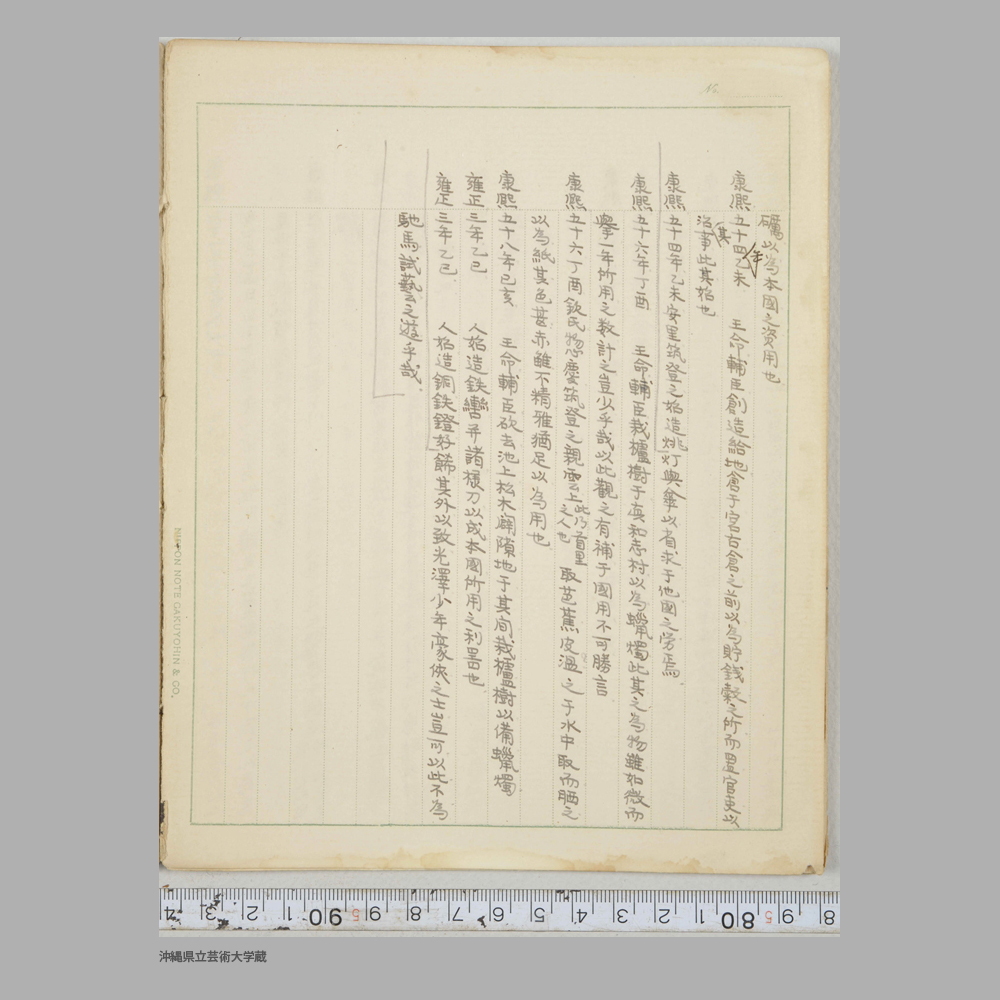 No.
礪以為本国之資用也
康熙五十四年乙未 王命輔臣創造給地倉于宮古倉之前以為貯錢穀之所而置官吏以
治其事此其始也
康熙五十四年乙未安里筑登之始造挑灯与傘以省求于他国之労焉
康熙五十六年丁酉 王命輔臣栽櫨樹于真和志村以為蠟燭此其之為物雖如微而
挙一年所用之数計之豈少乎哉以此観之有補于国用不可勝言
康熙五十六丁酉欽氏惣慶筑登之親雲上此乃首里之人也取芭蕉皮温之于水中取而晒之
以為紙其色甚赤雖不精雅猶足以為用也
康熙五十八年己亥 王命輔臣砍去池上松木開隙地于其間栽櫨樹以備蠟燭
雍正三年乙巳 人始造鉄轡并諸様刀以成本国所用之利器也
雍正三年乙巳 人始造銅鉄鐙好飾其外以致光澤少年豪侠之士豈可以此不為
馳馬試藝之遊乎哉
NIPPON NOTE GAKUYOHIN & CO.
4 3 2 1 90 9 8 7 6 5 4 3 2 1 80 9 8
沖縄県立芸術大学蔵